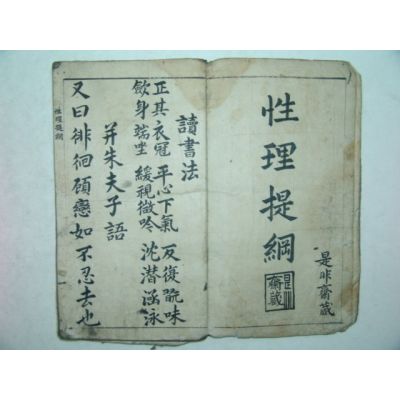 性理提綱
是非齋藏
是非
齋藏
讀書法
正其衣冠 平心下氣 反復翫味
歛身端坐 緩視微吟 沈潛涵泳
并朱夫子語
又曰徘徊顧戀如不忍去也
性理提綱